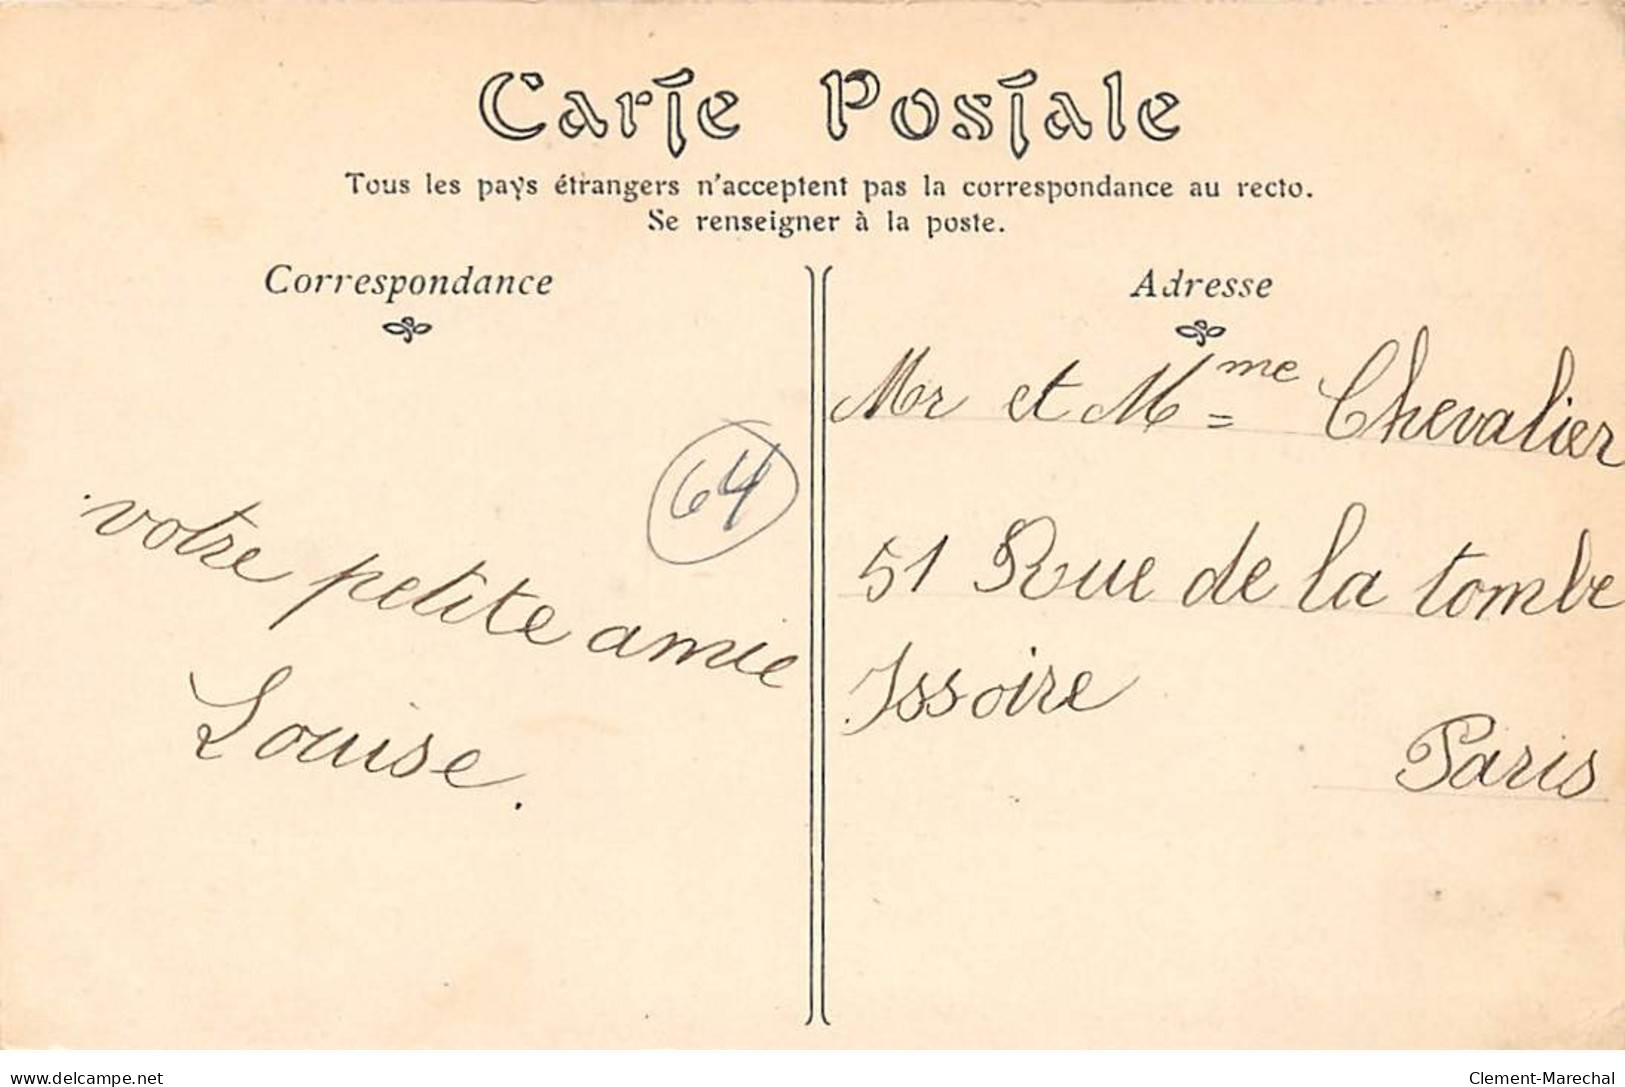 Carte Postale
Tous les pays étrangers n'acceptent pas la correspondance au recto.
Se renseigner à la poste.
Correspondance
Adresse
64
votre petite amie
Louise.
Mr et Mme Chevalier
51 Rue de la tombe
Issoire
Paris
www.delcampe.net
Clement-Marechal